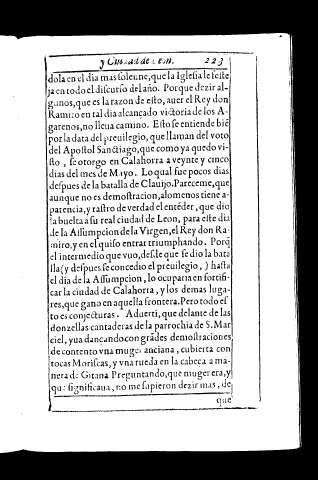 y Ciudad de Leon. 223
dola en el dia mas solenne, que la Iglesia le feste
ja en todo el discurso del año. Porque dezir al-
gunos, que es la razon de esto, auer el Rey don
Ramiro en tal dia alcançado victoria de los A-
garenos, no lleua camino. Esto se entiende biē
por la data del preuilegio, que llaman del voto
del Apostol Sanctiago, que como ya quedo vi-
sto, se otorgo en Calahorra a veynte y cinco
dias del mes de Mayo. Lo qual fue pocos dias
despues de la batalla de Clauijo. Pareceme, que
aunque no es demostracion, alomenos tiene a-
parencia, y rastro de verdad el entēder, que dio
la buelta a su real ciudad de Leon, para este dia
de la Assumpcion de la Virgen, el Rey don Ra-
miro, y en el quiso entrar triumphando. Porq̄
el intermedio que vuo, desde que se dio la bata
lla (y despues se concedio el preuilegio,) hasta
el dia de la Assumpcion, lo ocuparia en fortifi-
car la ciudad de Calahorra, y los demas luga-
res, que gano en aquella frontera. Pero todo es
to es conjecturas. Aduerti, que delante de las
donzellas cantaderas de la parrochia de S. Mar
ciel, yua dancando con grādes demostraciones
de contento vna muger anciana, cubierta con
tocas Moriscas, y vna rueda en la cabeça a ma-
nera de Gitana Preguntando, que muger era, y
que significaua, no me supieron dezir mas, de
que